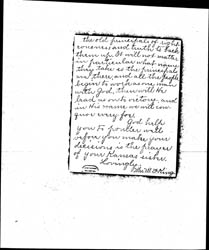 the old principals of right
eousness and truth to back
them up. It will not matter
in particular what name
they take as the principal
and all the people
begin to work as one man
with God, then will He
lead us on to victory, and
in His name we will con
quor every foe.
God help
you to ponder well
before you make your
decisions is the prayer
of your Kansas sister.
Lovingly